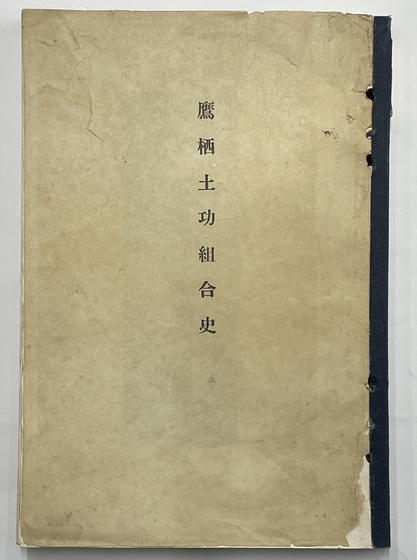 鷹栖土功組合史